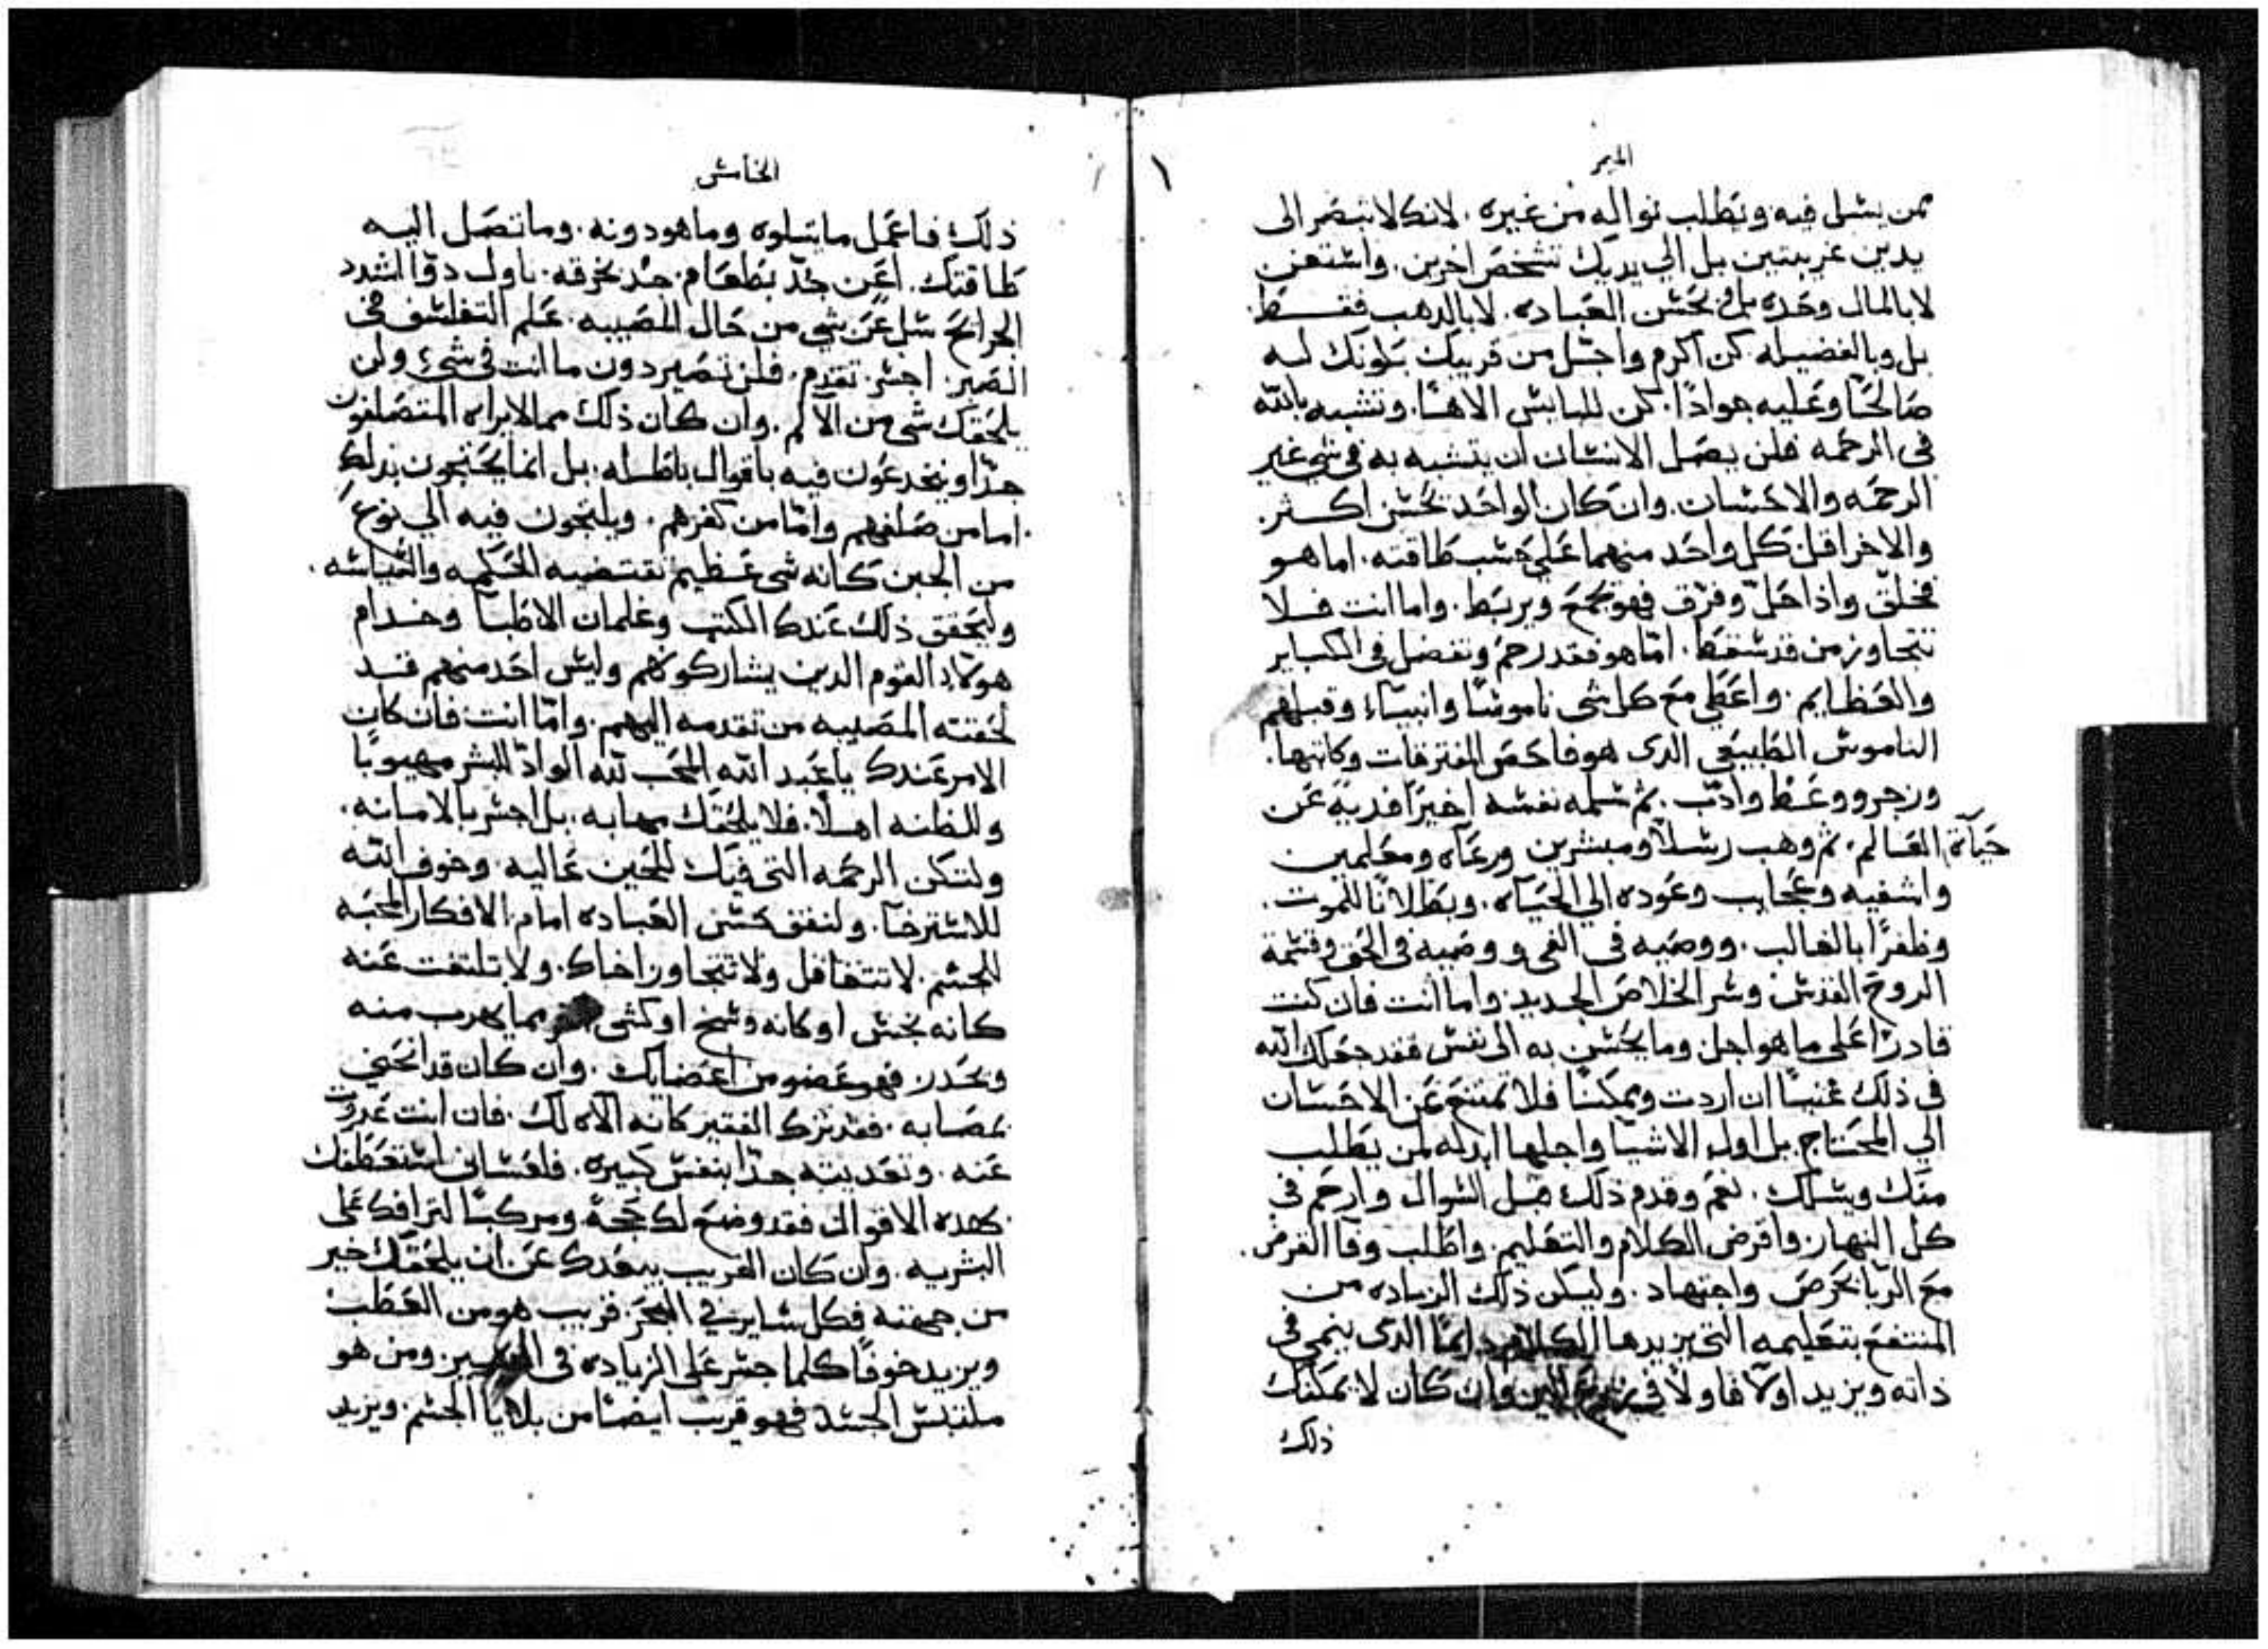 الميمر
ممن يسل فيه وتطلب نواله من غيره. لانك لا تبصر الى
يدين غريبتين بل الي يديك تشخص اخرين. واستغن
لا بالمال وحده بل في بحسن العباده. لا بالدهب فقط
بل وبالفضيله كن اكرم واجل من قريبك بكونك له
صالحًا وعليه جوادًا. كن للبايس الاهًا. وتشبه بالله
في الرحمه فلن يصل الانسان ان يتشبه به في شي غير
الرحمه والاحسان. وان كان الواحد بحسن اكثر.
والاخر اقل كل واحد منهما علي حسب طاقته. اما هو
فخلق واذا حل وفرق فهو يجمع ويربط. واما انت فلا
تتجاوز من قد سقط. امّا هو فقد رحم وتفضل في الكباير
والعظايم. واعطي مع كل شي ناموسًا وانبيآء وقبلهم
الناموس الطبيعي الدى هو فاحص المفترقات وكاتبها.
وزجر ووعظ وادّب. ثم سلمه نفسه اخيرًا فديةً عن
حياة العالم. ثم وهب رسلًا ومبشرين ورعاه ومعلمين
واشفيه وعجايب وعوده الي الحياه. وبطلانًا للموت.
وظفرًا بالغالب. ووصيه في الفي ووصيه في الحق وقسمة
الروح القدس وسر الخلاص الجديد. واما انت فان كنت
قادرًا على ما هو اجل وما يحسن به الى نفس فقد جعلك الله
في ذلك غنيًا ان اردت ويمكنًا فلا تمتنع عن الاحسان
الي المحتاج. بل اول الاشيا واجلها ابدله لمن يطلب
منك ويسلك. نعم وقدم ذلك قبل السوال وارحم في
كل النهار. واقرض الكلام والتعليم. واطلب وفا القرض.
مع الربا بحرص واجتهاد. وليكن ذلك الزياده من
المنتفع بتعليمه التي يزيدها الكلام دايمًا الدى ينمي في
ذاته ويزيد اولًا فاولًا في وان كان لا يمكنك
ذلك
الخامس
ذلك فاعمل ما يتلوه وما هو دونه. وما تصل اليه
طاقتك. اعن جُد بطعام جُد بخرقه. ناول دوًا اشدد
الجرايح سل عن شي من حال المصيبه. علم التفلسف في
الصبر. اجسر تقدم. فلن تصير دون ما انت في شيء ولن
يلحقك شي من الالم. وان كان ذلك مما لا يراه المتصلفون
جدًا وينخدعون فيه باقوال باطله. بل انما يحتجون بذلك
اما من صلفهم وامّا من كفرهم. ويلتجون فيه الي نوع
من الجبن كانه شي عظيم تقتضيه الحكمه والسياسه.
وليحقق ذلك عندك الكتب وغلمان الاطبآ وخدام
هولآء القوم الدين يشاركونهم وليس احد منهم قد
لحقته المصيبه من تقدمه اليهم. وامّا انت فان كان
الامر عندك يا عبد الله المحب لله الوادّ للبشر مهيوبًا
وللظنه اهلًا. فلا يلحقك مهابه. بل اجسر بالامانه.
ولتكن الرحمه التي فيك للجبن غاليه. وخوف الله
للاسترخآ. ولتفق حسن العباده امام الافكار المحبه
للجسم. لا تتغافل ولا تتجاوز اخاك. ولا تلتفت عنه
كانه نجس او كانه وسخ او كشي مما يهرب منه
ويحدر. فهو عضو من اعضايك. وان كان قد انحني
بمصابه. فقد ترك الفقير كانه الاه لك. فان انت عدوت
عنه. وتعديته جدًا بنفس كبيره. فلعساني استعطفك
بهده الاقوال فقد وضع لك حجة ومركبًا لترافك على
البشريه. وان كان القريب يبعدك عن ان يلحقك خير
من جهته فكل ساير في البحر. قريب هو من العطب
ويزيد خوفًا كلما جسر على الزياده في المسير. ومن هو
ملتبس الجسد فهو قريب ايضًا من بلايا الجسم. ويزيد